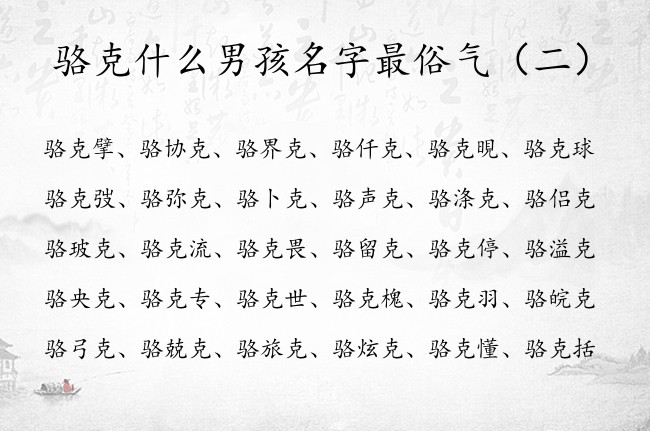 骆克什么男孩名字最俗气（二）
骆克擘、骆协克、骆界克、骆仟克、骆克晛、骆克球
骆克弢、骆弥克、骆卜克、骆声克、骆涤克、骆侣克
骆玻克、骆克流、骆克畏、骆留克、骆克停、骆溢克
骆央克、骆克专、骆克世、骆克槐、骆克羽、骆皖克
骆弓克、骆兢克、骆旅克、骆炫克、骆克懂、骆克括